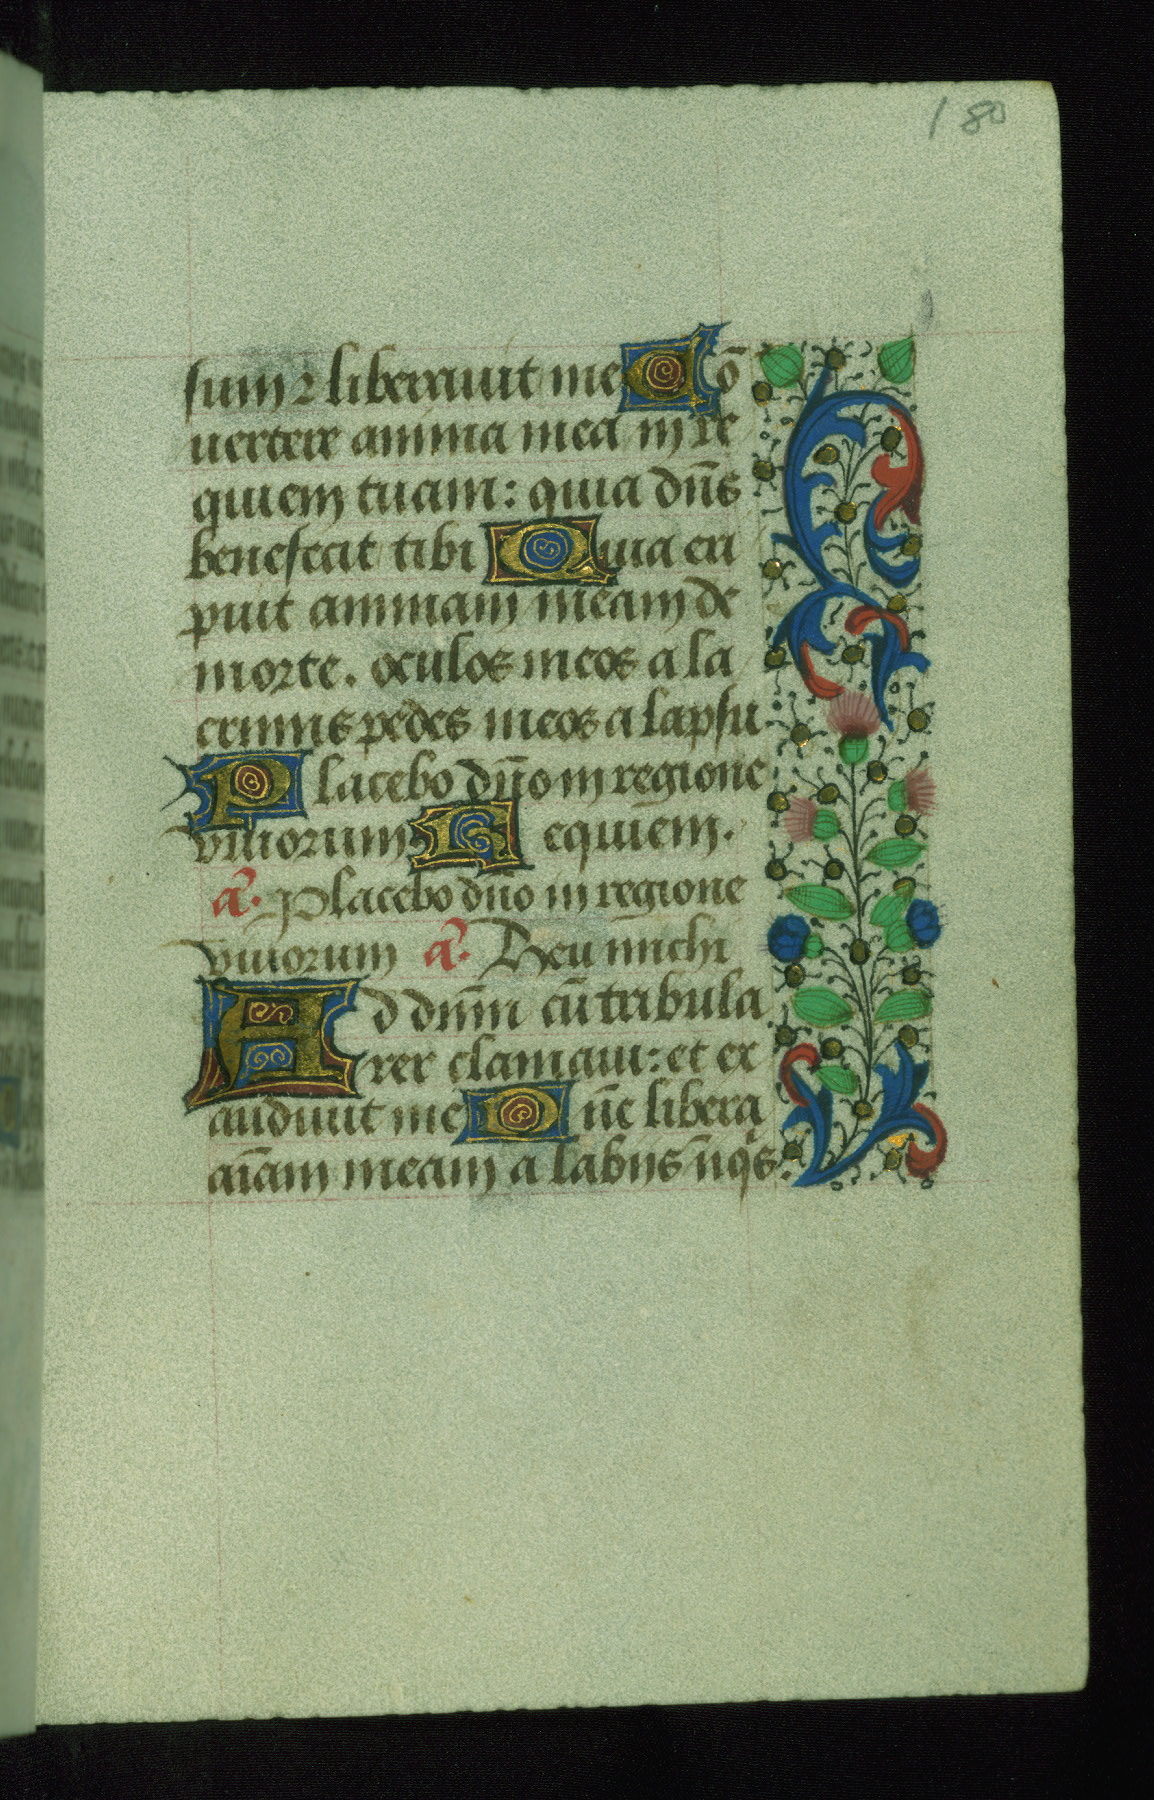 180
sum ⁊ liberauit me Cō
uertere anima mea in re
quiem tuam: quia dn̄s
benefecit tibi Quia eri
puit animam meam de
morte. oculos meos a la
crimis pedes meos a lapsu
Placebo dn̄o in regione
viuorum Requiem.
a̾. Placebo dn̄o in regione
viuorum a̾. Heu michi
Ad dn̄m cū tribula
rer clamaui: et ex
audiuit me Dn̄e libera
aīam meam a labijs īiq̄s: